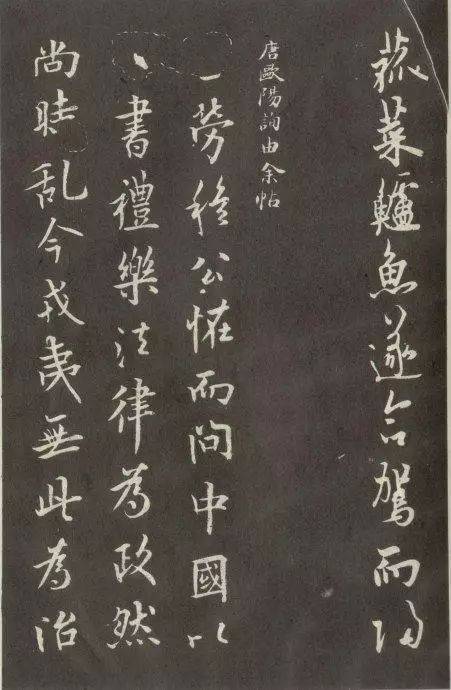 菰菜鱸魚遂命駕而歸
唐歐陽詢由余帖
勞穆公怪而問中國以
書禮樂法律為政然
尚時乱今戎夷無此為治